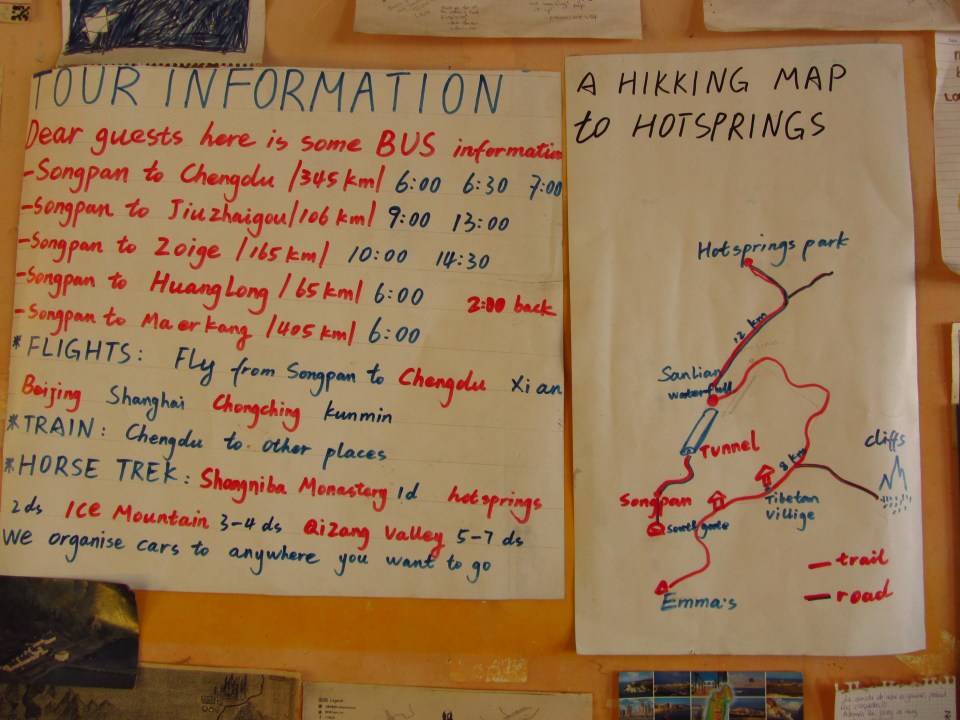 TOUR INFORMATION
Dear guests here is some BUS information
-Songpan to Chengdu /345 km/ 6:00 6:30 7:00
-Songpan to Jiuzhaigou/106 km/ 9:00 13:00
-Songpan to Zoige /165 km/ 10:00 14:30
-Songpan to HuangLong /65 km/ 6:00 2:00 back
-Songpan to Ma er kang /405 km/ 6:00
*FLIGHTS: Fly from Songpan to Chengdu Xi an
Beijing Shanghai Chongching kunmin
*TRAIN: Chengdu to other places
*HORSE TREK: Shangniba Monastery 1d hotsprings
2ds ICE Mountain 3-4 ds Qizang Valley 5-7 ds
We organise cars to anywhere you want to go
A HIKKING MAP
to HOTSPRINGS
Hotsprings park
12 km
Sanlian
waterfall
Tunnel
cliffs
8 km
Songpan
South gate
Tibetan
Villige
trail
road
Emma's